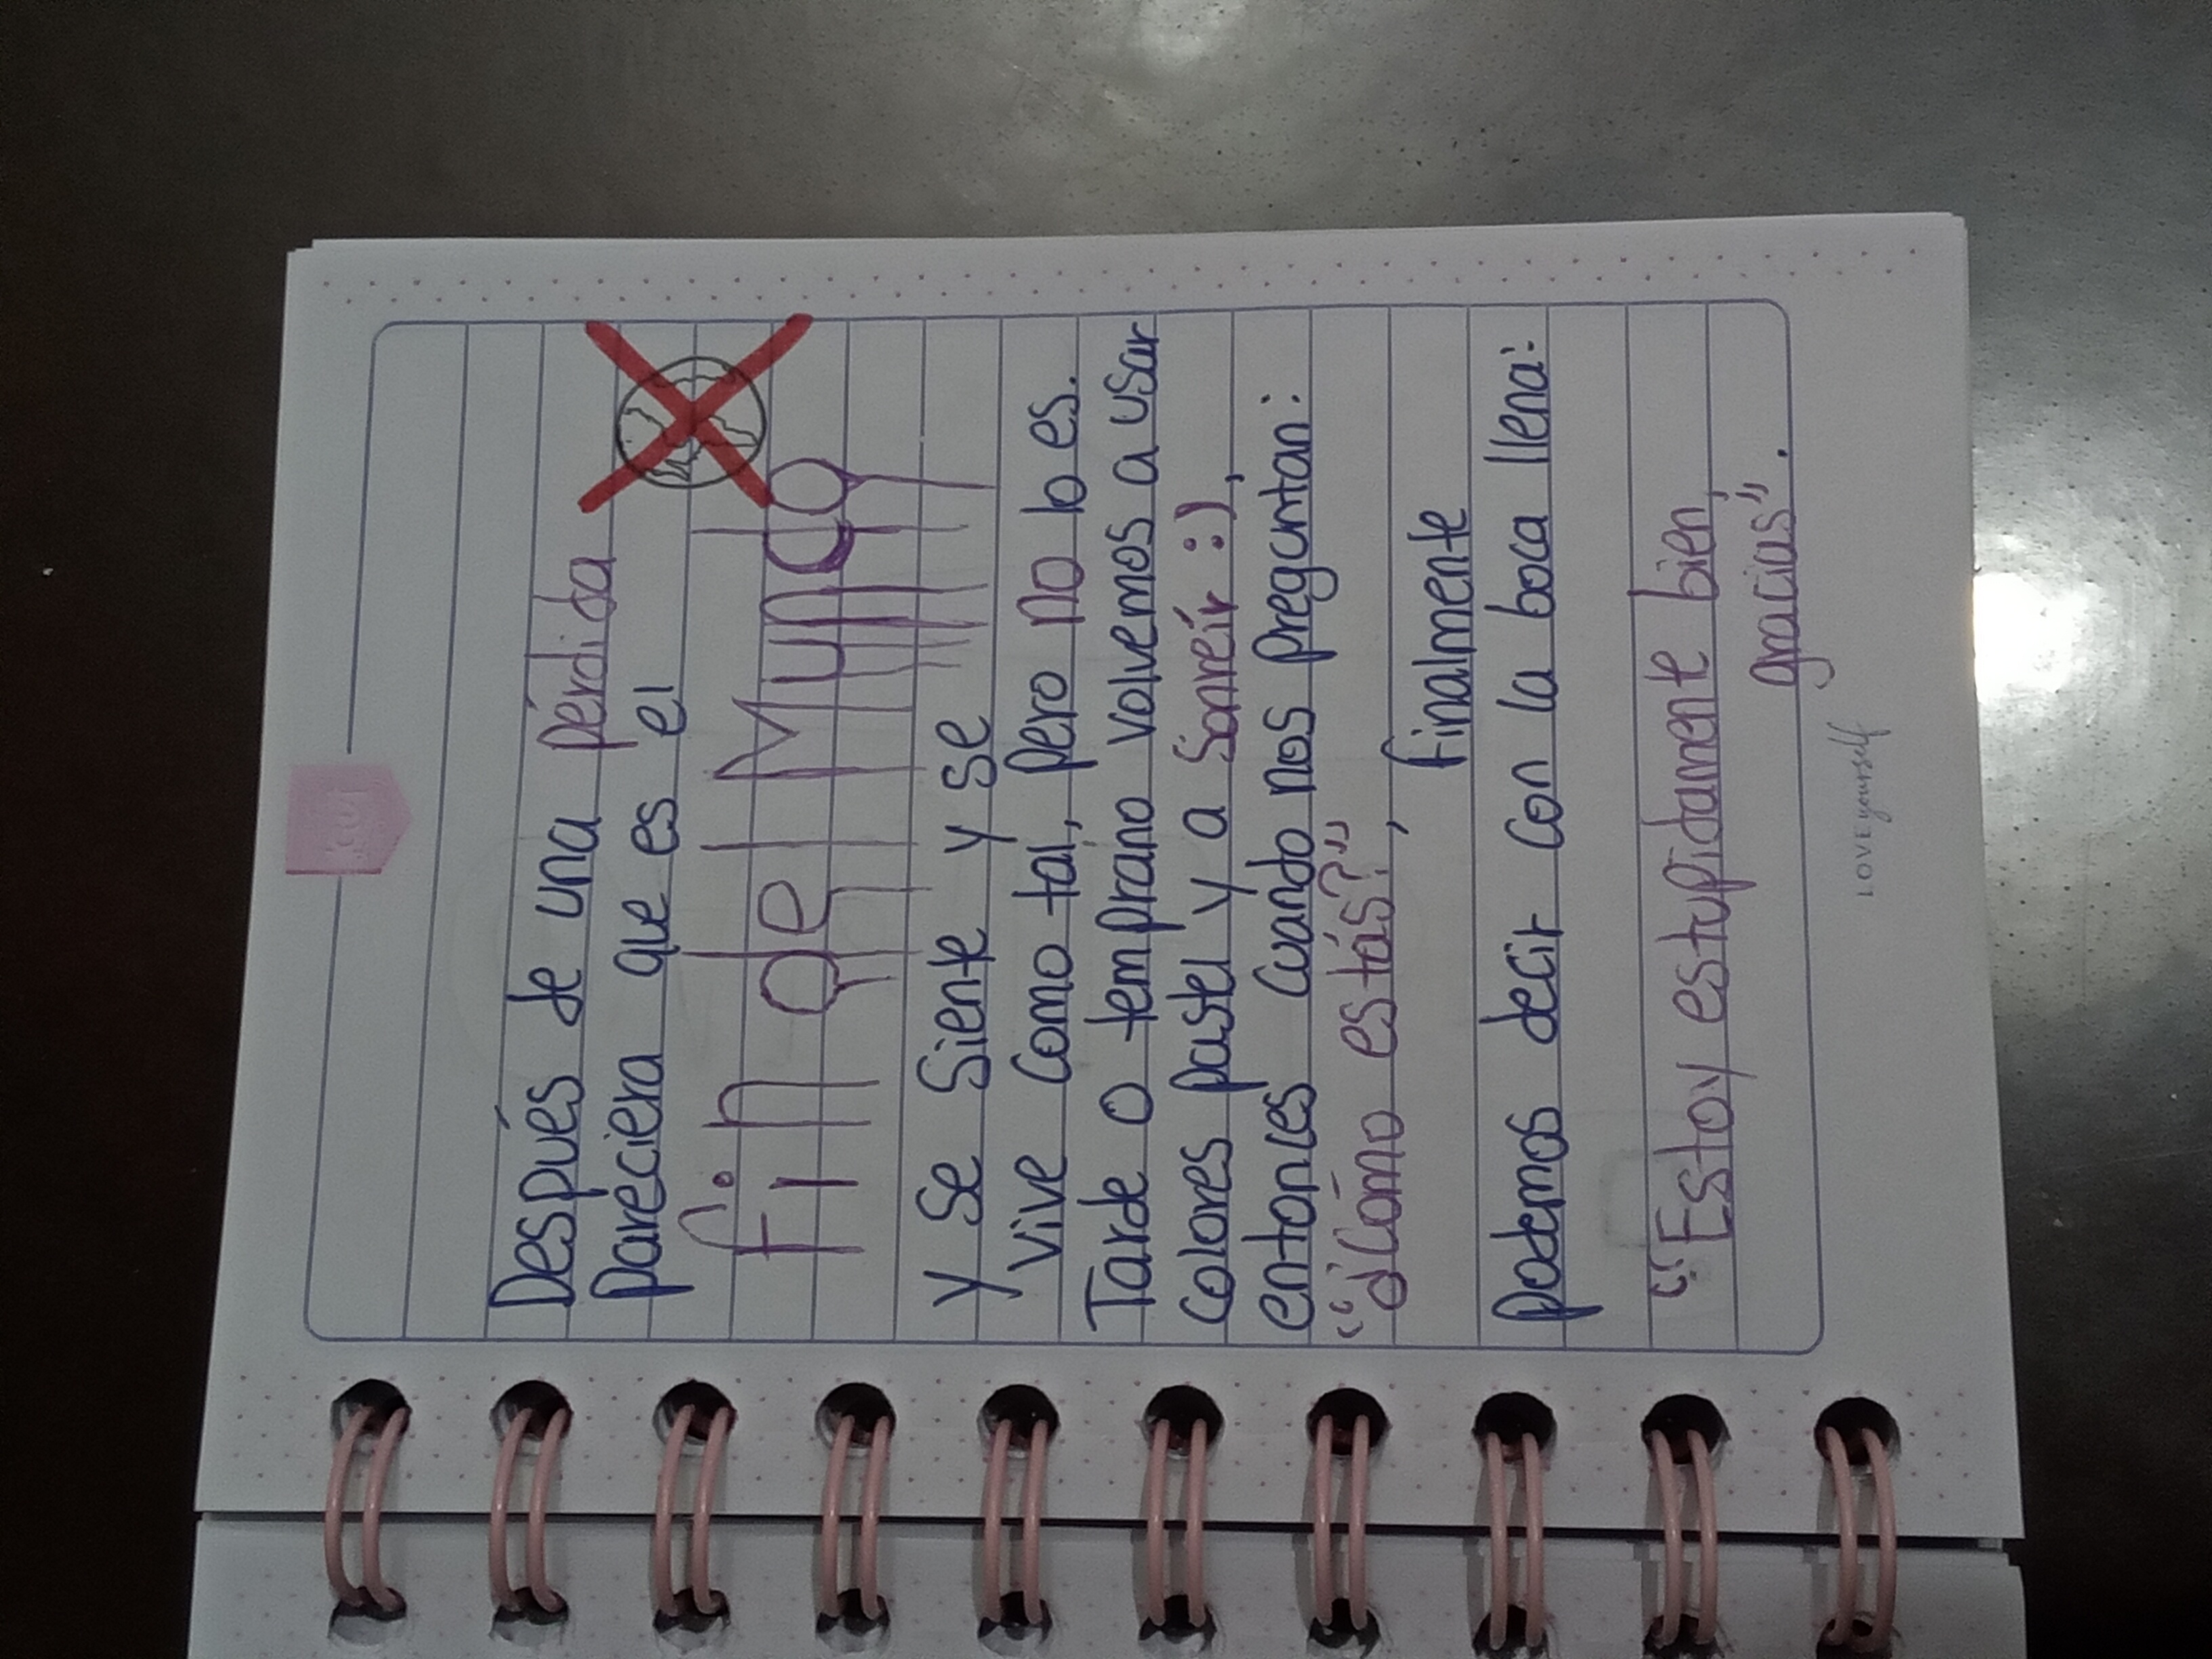 Después de una pérdida
pareciera que es el
fin del Mundo
y se siente y se
vive como tal, pero no lo es.
Tarde o temprano volvemos a usar
colores pastel y a sonreír :),
entonces cuando nos preguntan:
"¿Cómo estás?",
finalmente
podemos decir con la boca llena:
"Estoy estupidamente bien,
gracias".
LOVE yourself